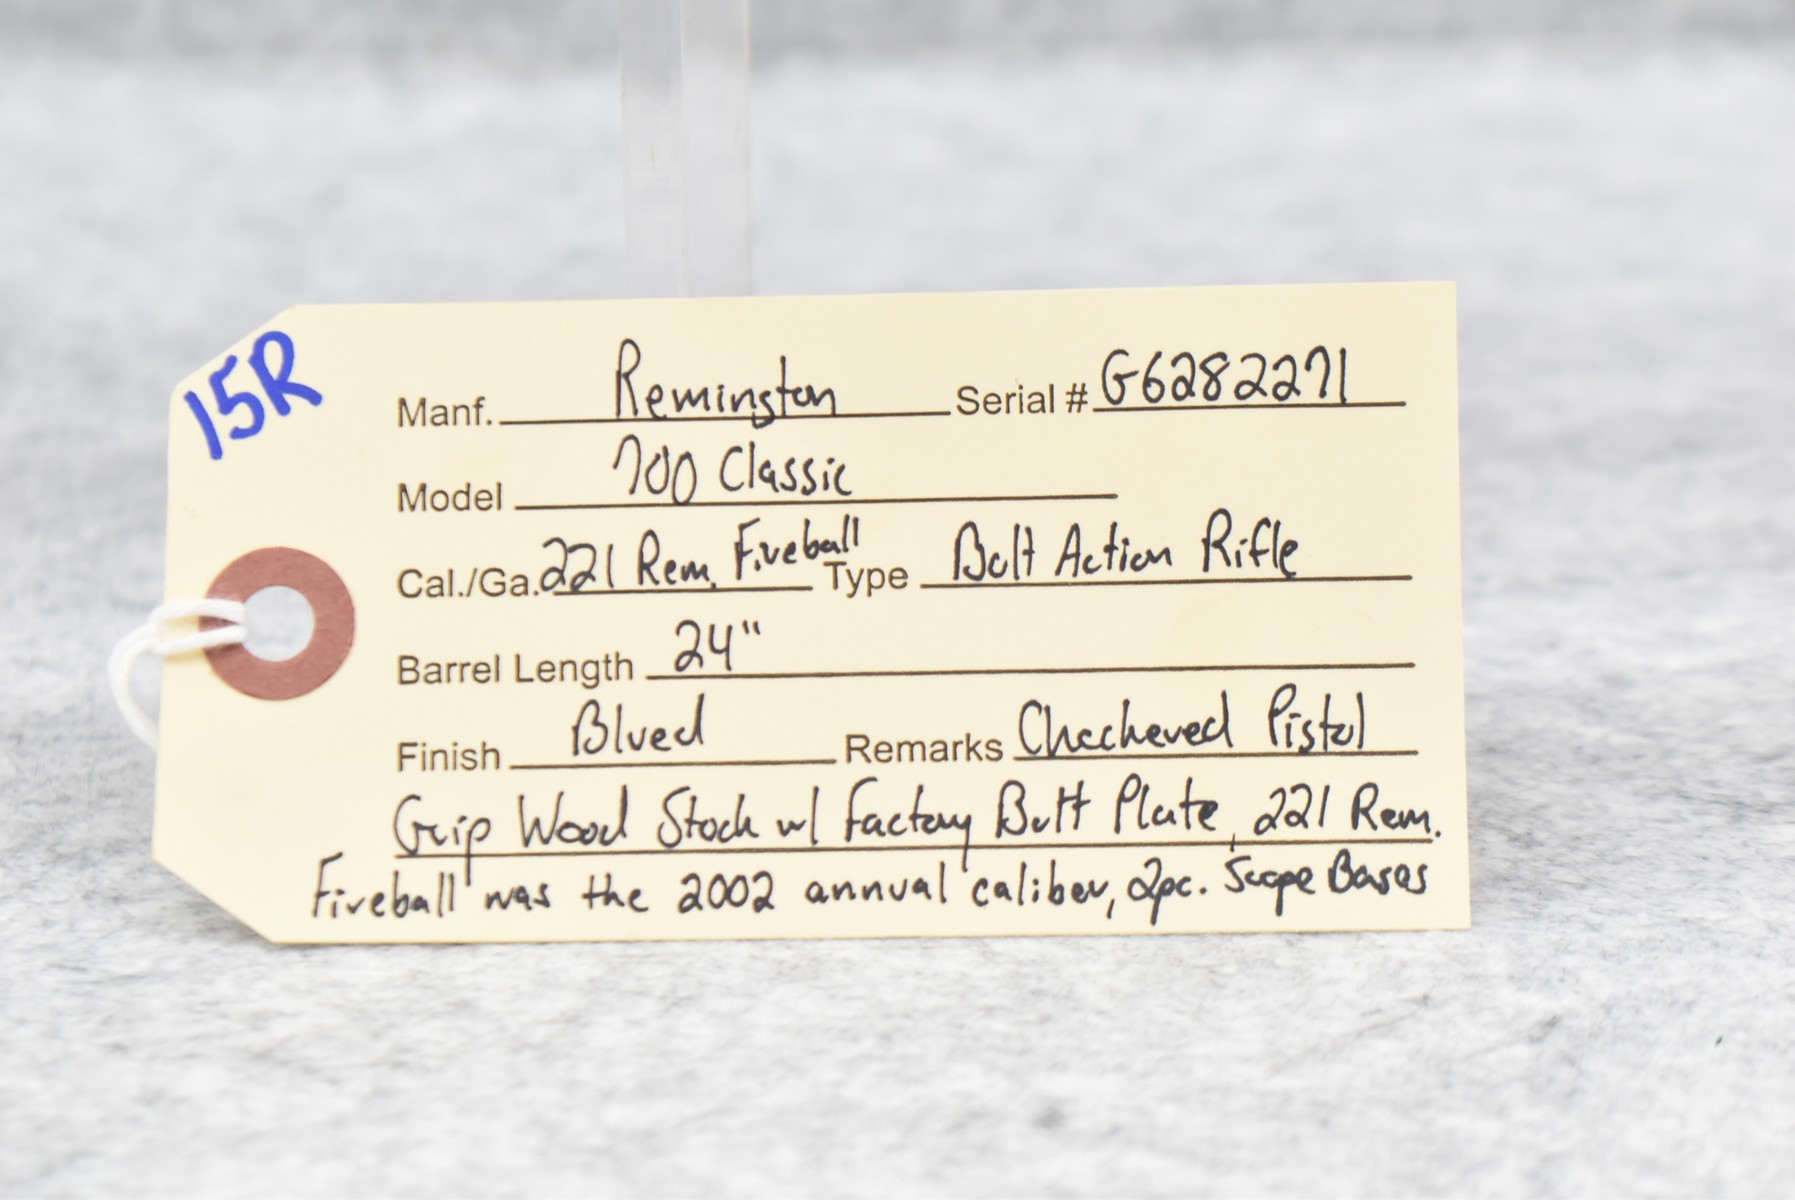 15R
Manf. Remington Serial # G6282271
Model 700 Classic
Cal./Ga. 221 Rem. Fireball Type Bolt Action Rifle
Barrel Length 24"
Finish Blued Remarks Checkered Pistol
Grip Wood Stock w/ Factory Butt Plate, 221 Rem.
Fireball was the 2002 annual caliber, 2pc. Scope Bases